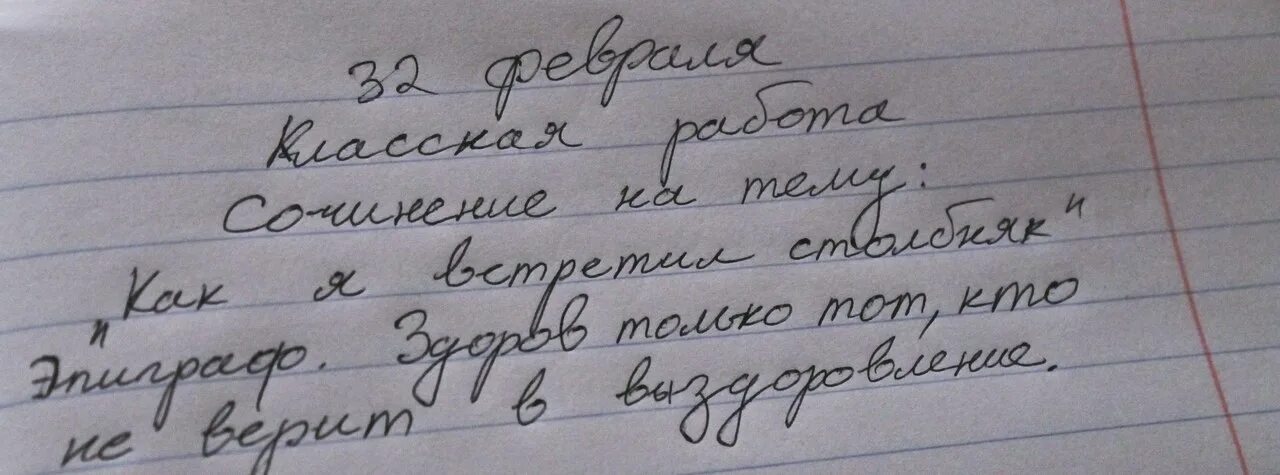 32 февраля
Классная работа
Сочинение на тему:
„Как я встретил столбняк"
Эпиграф. Здоров только тот, кто
не верит в выздоровление.